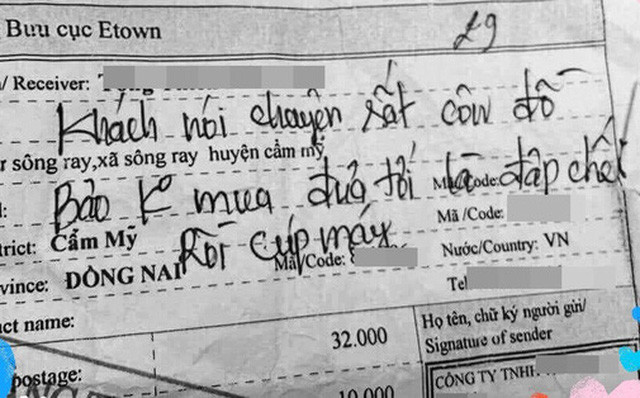 Bưu cục Etown
29
/ Receiver:
Khách nói chuyện rất côn đồ
r sông ray,xã sông ray huyện cẩm mỹ
Bảo k mua đưa tới là đập chết
Code:
trict: Cẩm Mỹ
Mã /Code:
Rồi cúp máy
vince: ĐỒNG NAI
Mã/Code:
Nước/Country: VN
Tel
act name:
32.000
Họ tên, chữ ký người gửi/
Signature of sender
postage:
10.000
CÔNG TY TNHH